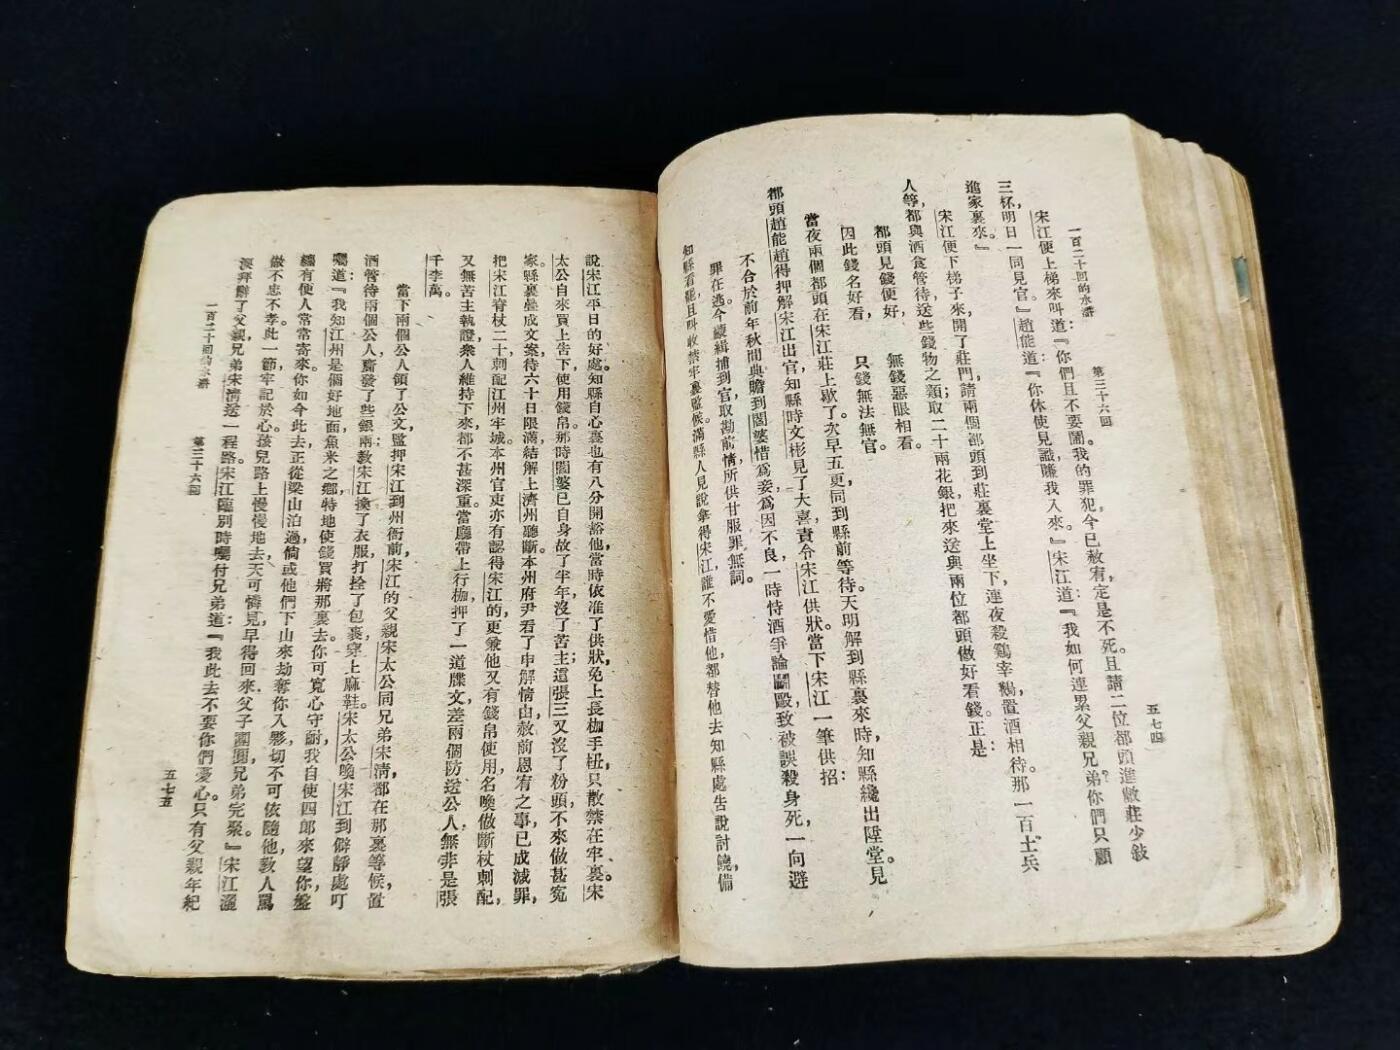 一百二十回的水滸　第三十六回　五七四
宋江便上梯來叫道：『你們且不要鬧。我的罪犯，今已赦宥，定是不死。且請二位都頭進敝莊少敍
三杯，明日一同見官。』趙能道：『你休使見識賺我入來。』宋江道：『我如何連累父親兄弟？你們只顧
進家裏來。』
宋江便下梯子來，開了莊門，請兩個都頭到莊裏堂上坐下；連夜殺鷄宰鵝，置酒相待。那一百士兵
人等，都與酒食管待，送些錢物之類；取二十兩花銀，把來送與兩位都頭做好看錢。正是：
都頭見錢便好，　無錢惡眼相看。
因此錢名好看，　只錢無法無官。
當夜兩個都頭在宋江莊上歇了。次早五更，同到縣前等待。天明，解到縣裏來時，知縣纔出陞堂。見
都頭趙能趙得押解宋江出官，知縣時文彬見了大喜，責令宋江供狀。當下宋江一筆供招：
不合於前年秋間典贍到閻婆惜爲妾。爲因不良，一時恃酒爭論鬭毆，致被誤殺身死，一向避
罪在逃。今蒙緝捕到官，取勘前情，所供甘服罪無詞。
知縣看罷，且叫收禁牢裏監候。滿縣人見說拿得宋江，誰不愛惜他，都替他去知縣處告說討饒，備
說宋江平日的好處。知縣自心裏也有八分開豁他，當時依准了供狀，免上長枷手杻，只散禁在牢裏。宋
太公自來買上告下，使用錢帛。那時閻婆已自身故了半年，沒了苦主；這張三又沒了粉頭，不來做甚寃
家。縣裏疊成文案，待六十日限滿，結解上濟州聽斷。本州府尹看了申解情由，赦前恩宥之事，已成減罪，
把宋江脊杖二十，刺配江州牢城。本州官吏亦有認得宋江的，更兼他又有錢帛使用，名喚做斷杖刺配，
又無苦主執證，衆人維持下來，都不甚深重。當廳帶上行枷，押了一道牒文，差兩個防送公人，無非是張
千李萬。
當下兩個公人領了公文，監押宋江到州衙前。宋江的父親宋太公同兄弟宋清，都在那裏等候，置
酒管待兩個公人，齎發了些銀兩；教宋江換了衣服，打拴了包裹，穿上麻鞋。宋太公喚宋江到僻靜處叮
囑道：『我知江州是個好地面，魚米之鄉，特地使錢買將那裏去。你可寬心守耐，我自使四郎來望你，盤
纏有便人常常寄來。你如今此去，正從梁山泊過，倘或他們下山來劫奪你入夥，切不可依隨他，教人罵
做不忠不孝。此一節牢記於心。孩兒，路上慢慢地去。天可憐見，早得回來，父子團圓，兄弟完聚。』宋江灑
淚拜辭了父親，兄弟宋清送一程路。宋江臨別時囑付兄弟道：『我此去不要你們憂心。只有父親年紀
一百二十回的水滸　第三十六回　五七五